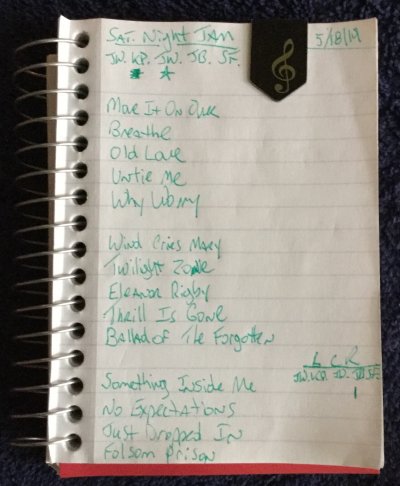 Sat. Night Jam
5/18/19
JW. KP. JW. JB. SF.
Move It On Over
Breathe
Old Love
Untie Me
Why Worry
Wind Cries Mary
Twilight Zone
Eleanor Rigby
Thrill Is Gone
Ballad of The Forgotten
L C R
JW. KP. JW. JB. SF.
1
Something Inside Me
No Expectations
Just Dropped In
Folsom Prison